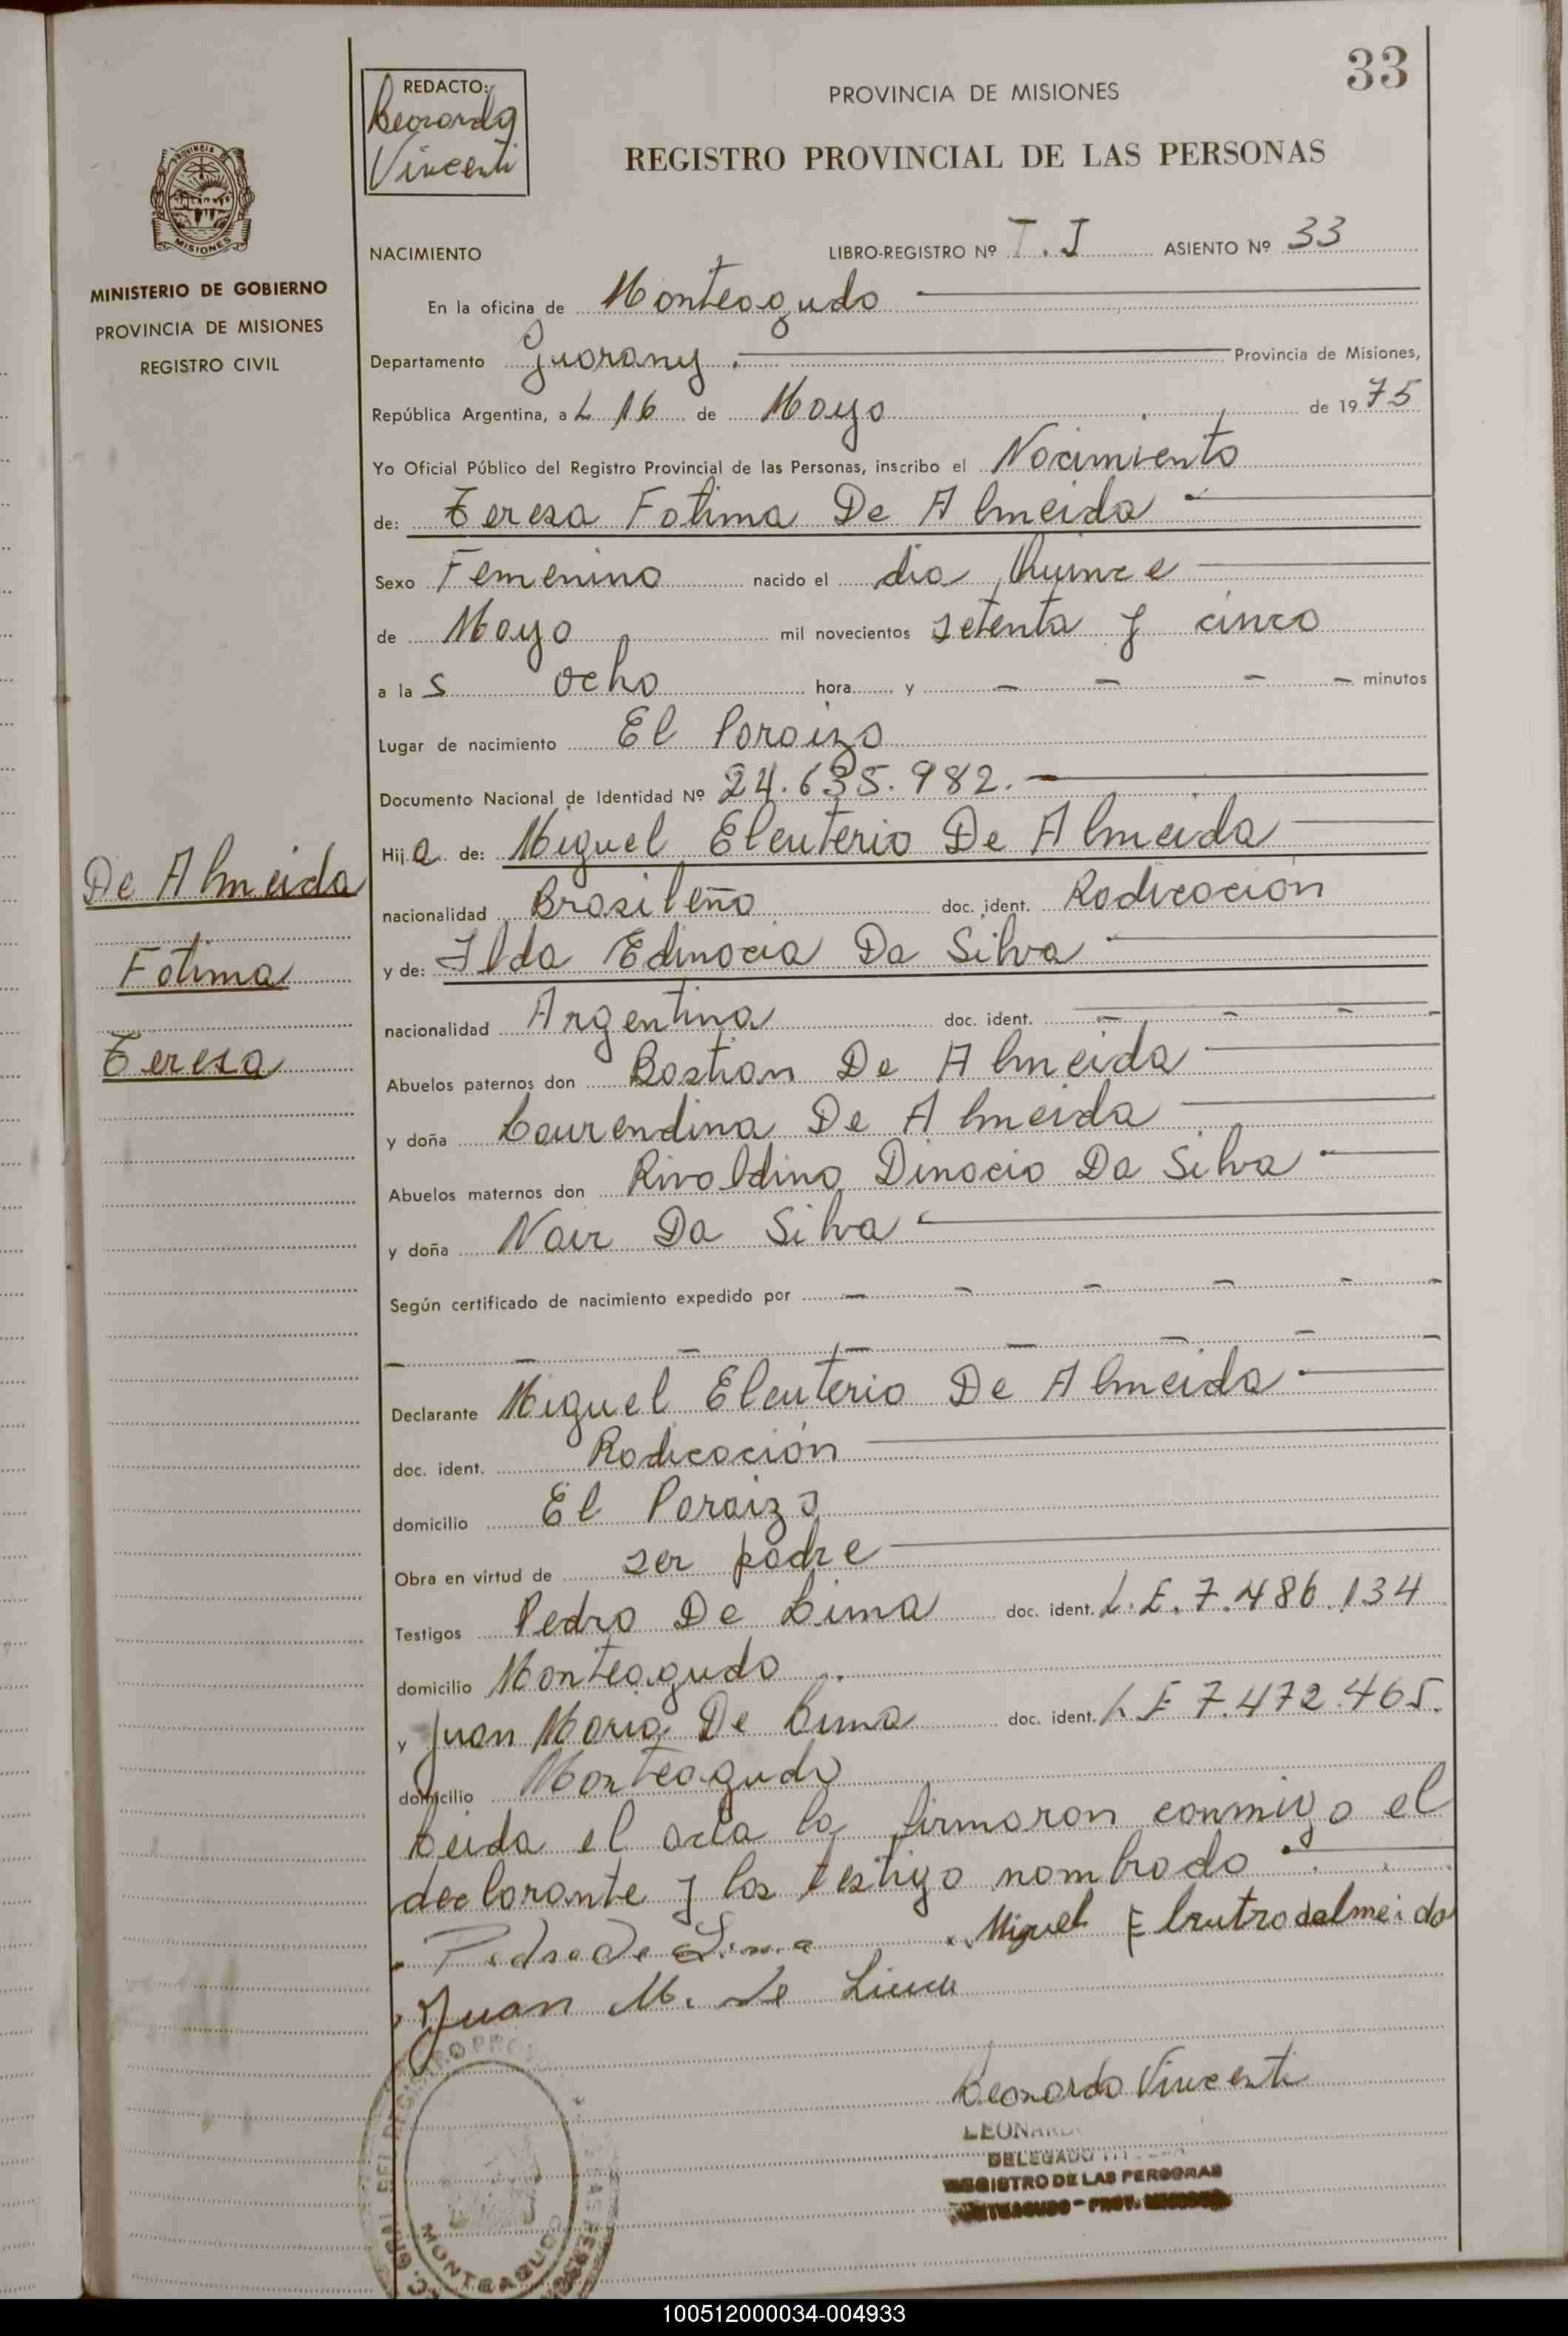 33
REDACTO:
Leonardo
Vincenti
PROVINCIA DE MISIONES
REGISTRO PROVINCIAL DE LAS PERSONAS
PROVINCIA
MISIONES
MINISTERIO DE GOBIERNO
PROVINCIA DE MISIONES
REGISTRO CIVIL
NACIMIENTO LIBRO-REGISTRO Nº T.I ASIENTO Nº 33
En la oficina de Monteagudo
Departamento Guarany. Provincia de Misiones,
República Argentina, a L 16 de Mayo de 1975
Yo Oficial Público del Registro Provincial de las Personas, inscribo el Nacimiento
de: Teresa Fatima De Almeida
Sexo Femenino nacido el dia Quince
de Mayo mil novecientos setenta y cinco
a la s ocho hora y - - - - minutos
Lugar de nacimiento El Paraizo
Documento Nacional de Identidad Nº 24.635.982.
Hij a de: Miguel Eleuterio De Almeida
nacionalidad Brasileño doc. ident. Radicación
y de: Ilda Edinacia Da Silva
nacionalidad Argentina doc. ident. - - - -
Abuelos paternos don Bastian De Almeida
y doña Laurendina De Almeida
Abuelos maternos don Rivaldino Dinacio Da Silva
y doña Nair Da Silva
Según certificado de nacimiento expedido por - - - - - -
- - - - - - - -
Declarante Miguel Eleuterio De Almeida
doc. ident. Radicación
domicilio El Paraizo
Obra en virtud de ser padre
Testigos Pedro De Lima doc. ident. L.E.7.486.134
domicilio Monteagudo.
y Juan Maria De Lima doc. ident. L.E 7.472.465.
domicilio Monteagudo
Leida el acta la firmaron conmigo el
declarante y los testigo nombrado.
De Almeida
Fatima
Teresa
Pedro De Lima Miguel Eleutrodalmeida
Juan M. de Lima
Leonardo Vincenti
DELEGADO
REGISTRO DE LAS PERSONAS
MONTEAGUDO - PROV. MISIONES
MONTEAGUDO
100512000034-004933